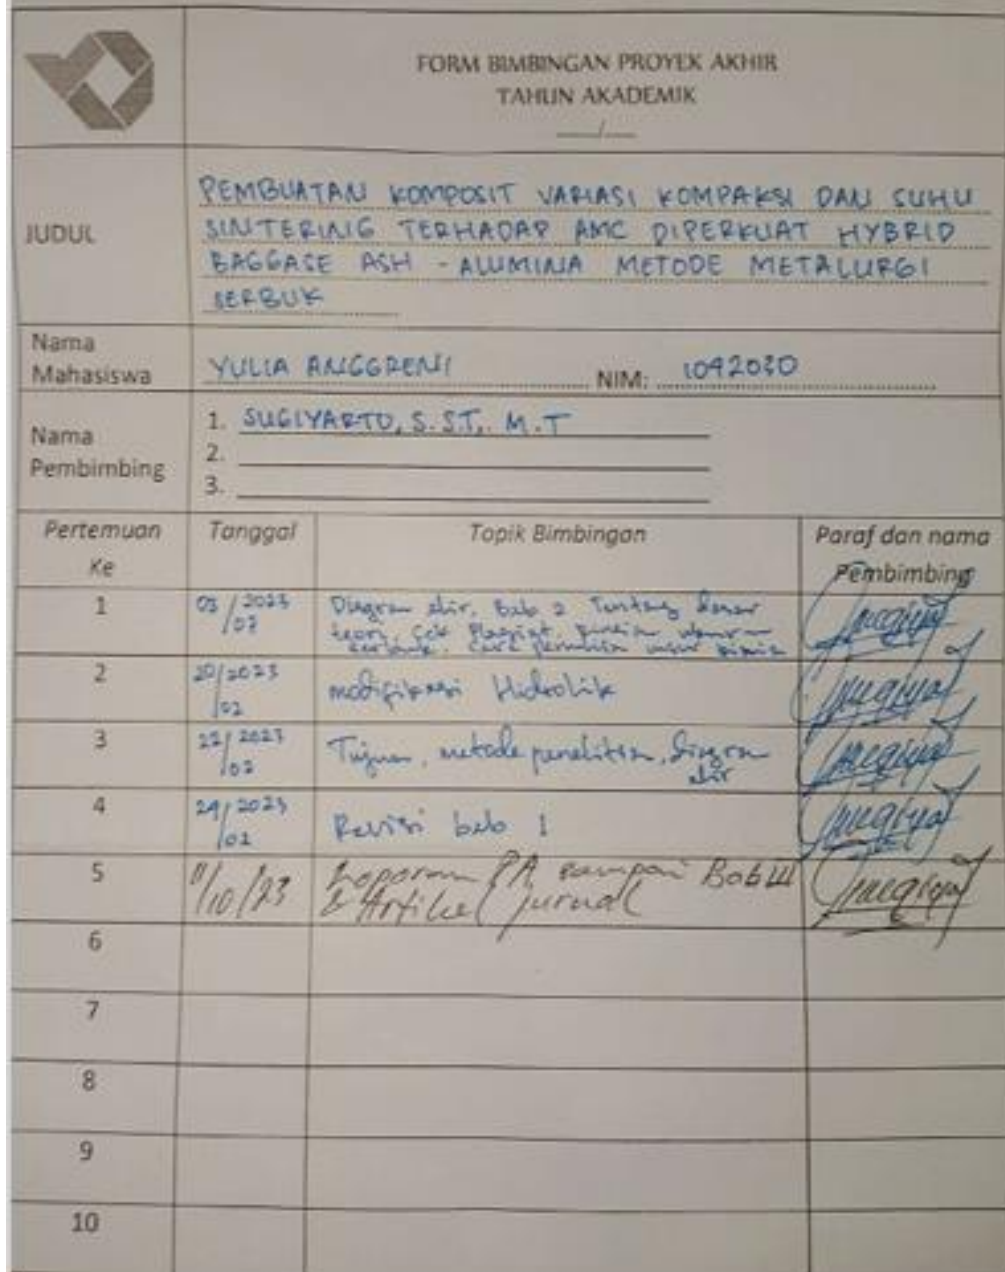 FORM BIMBINGAN PROYEK AKHIR
TAHUN AKADEMIK
____/____
JUDUL
PEMBUATAN KOMPOSIT VARIASI KOMPAKSI DAN SUHU
SINTERING TERHADAP AMC DIPERKUAT HYBRID
BAGGASE ASH - ALUMINA METODE METALURGI
SERBUK
Nama
Mahasiswa
YULIA ANGGRENI NIM: 1042030
Nama
Pembimbing
1. SUGIYARTO, S.ST,. M.T
2.
3.
Pertemuan
Ke
Tanggal
Topik Bimbingan
Paraf dan nama
Pembimbing
1
03/2023
Diagram alir, Bab 2 Tentang dasar
teori, Cek Plagiat,
2
20/2023
/02
modifikasi Hidrolik
3
22/2023
/02
Tujuan, metode penelitian, diagram
alir
4
24/2023
/02
Revisi bab 1
5
11/10/23
Laporan PA sampai Bab III
& Artikel jurnal
6
7
8
9
10